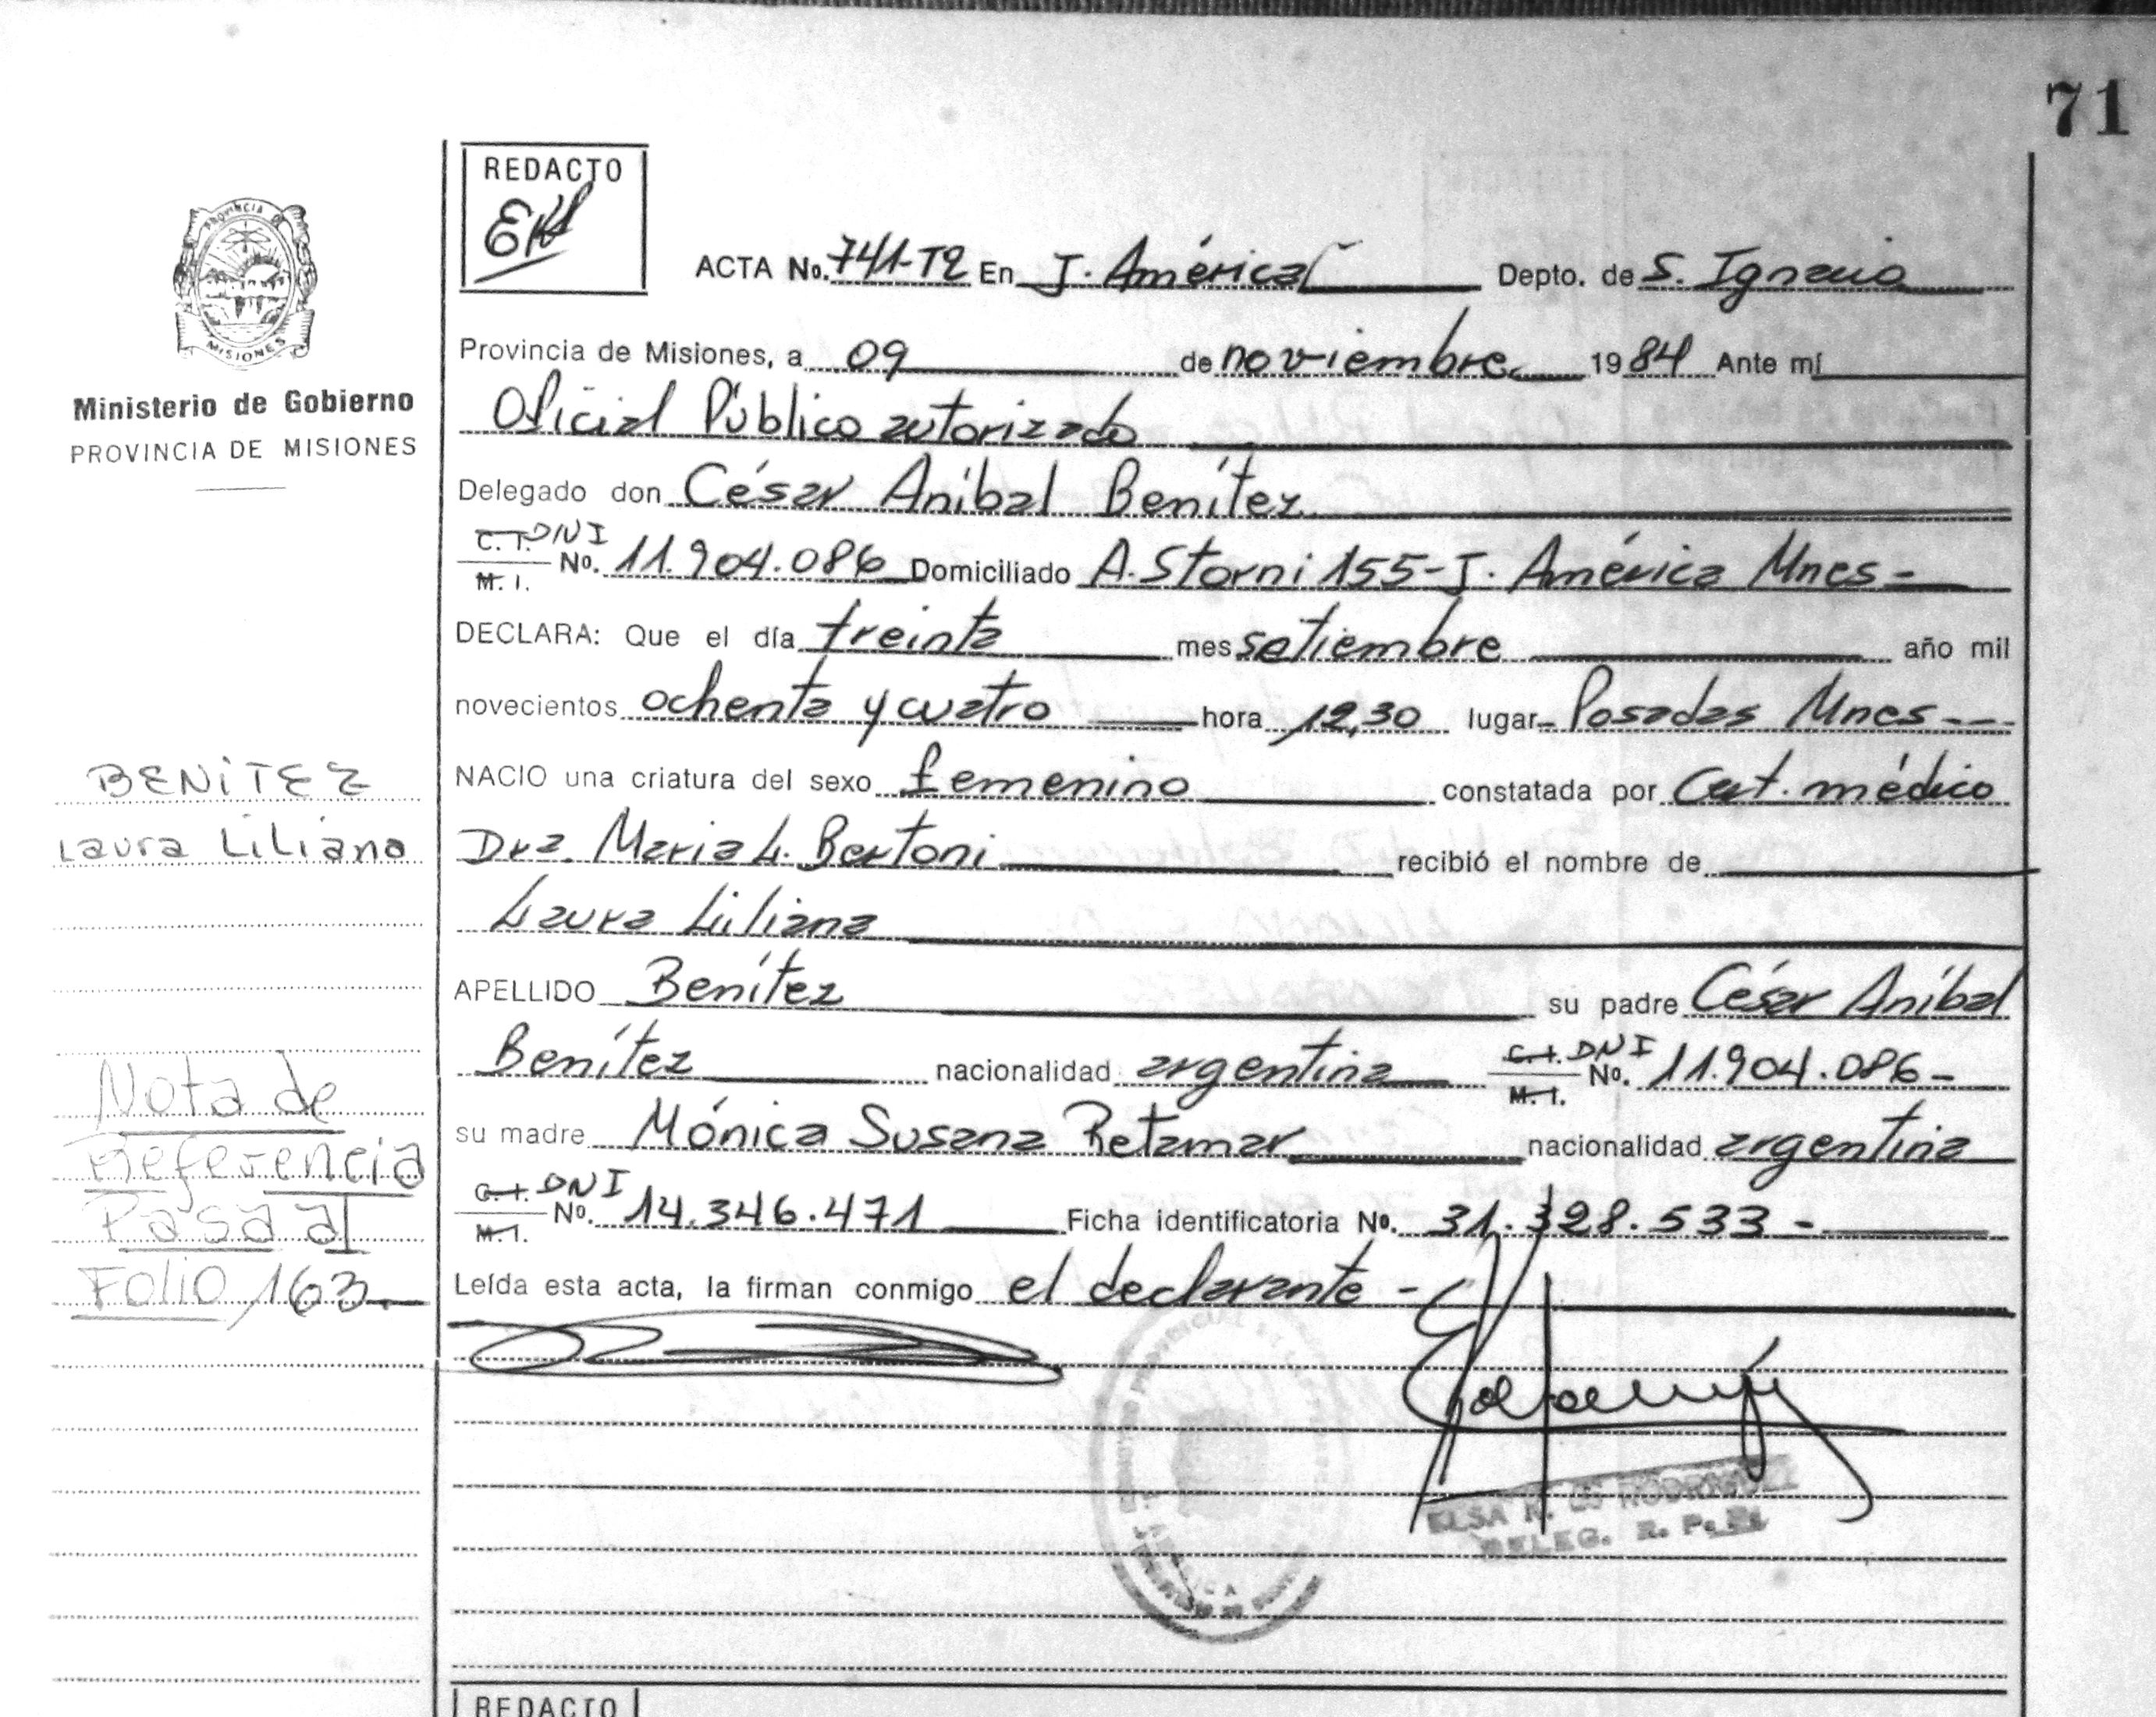 71
REDACTO
PROVINCIA DE
MISIONES
Ministerio de Gobierno
PROVINCIA DE MISIONES
ACTA No. 741-T2 En J. América Depto. de S. Ignacio
Provincia de Misiones, a 09 de noviembre 1984 Ante mí
Oficial Público autorizado
Delegado don César Aníbal Benítez
C. I. DNI
M. I. No. 11.904.086 Domiciliado A. Storni 155-J. América Mnes-
DECLARA: Que el día treinta mes setiembre año mil
novecientos ochenta y cuatro hora 12,30 lugar Posadas Mnes---
NACIO una criatura del sexo femenino constatada por Cert. médico
Dra. Maria L. Bertoni recibió el nombre de
Laura Liliana
APELLIDO Benítez su padre César Aníbal
Benítez nacionalidad argentina C. I. DNI M. I. No. 11.904.086-
su madre Mónica Susana Retamar nacionalidad argentina
C. I. DNI M. I. No. 14.346.471 Ficha identificatoria No. 31.328.533-
Leída esta acta, la firman conmigo el declarante -
BENITEZ
Laura Liliana
Nota de
Referencia
Pasa al
Folio 163-
ELSA N. DE RODRIGUEZ
DELEG. R. P. P.
REDACTO